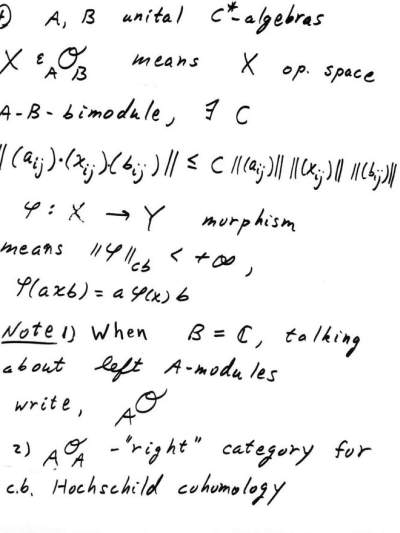 A, B unital C*-algebras
X ε _A𝒪_B means X op. space
A-B-bimodule, ∃ C
‖(a_ij)·(x_ij)·(b_ij)‖ ≤ C ‖(a_ij)‖ ‖(x_ij)‖ ‖(b_ij)‖
φ : X → Y morphism
means ‖φ‖_cb < +∞,
φ(axb) = a φ(x) b
Note 1) When B = ℂ, talking
about left A-modules
write, _A𝒪
2) _A𝒪_A - "right" category for
c.b. Hochschild cohomology